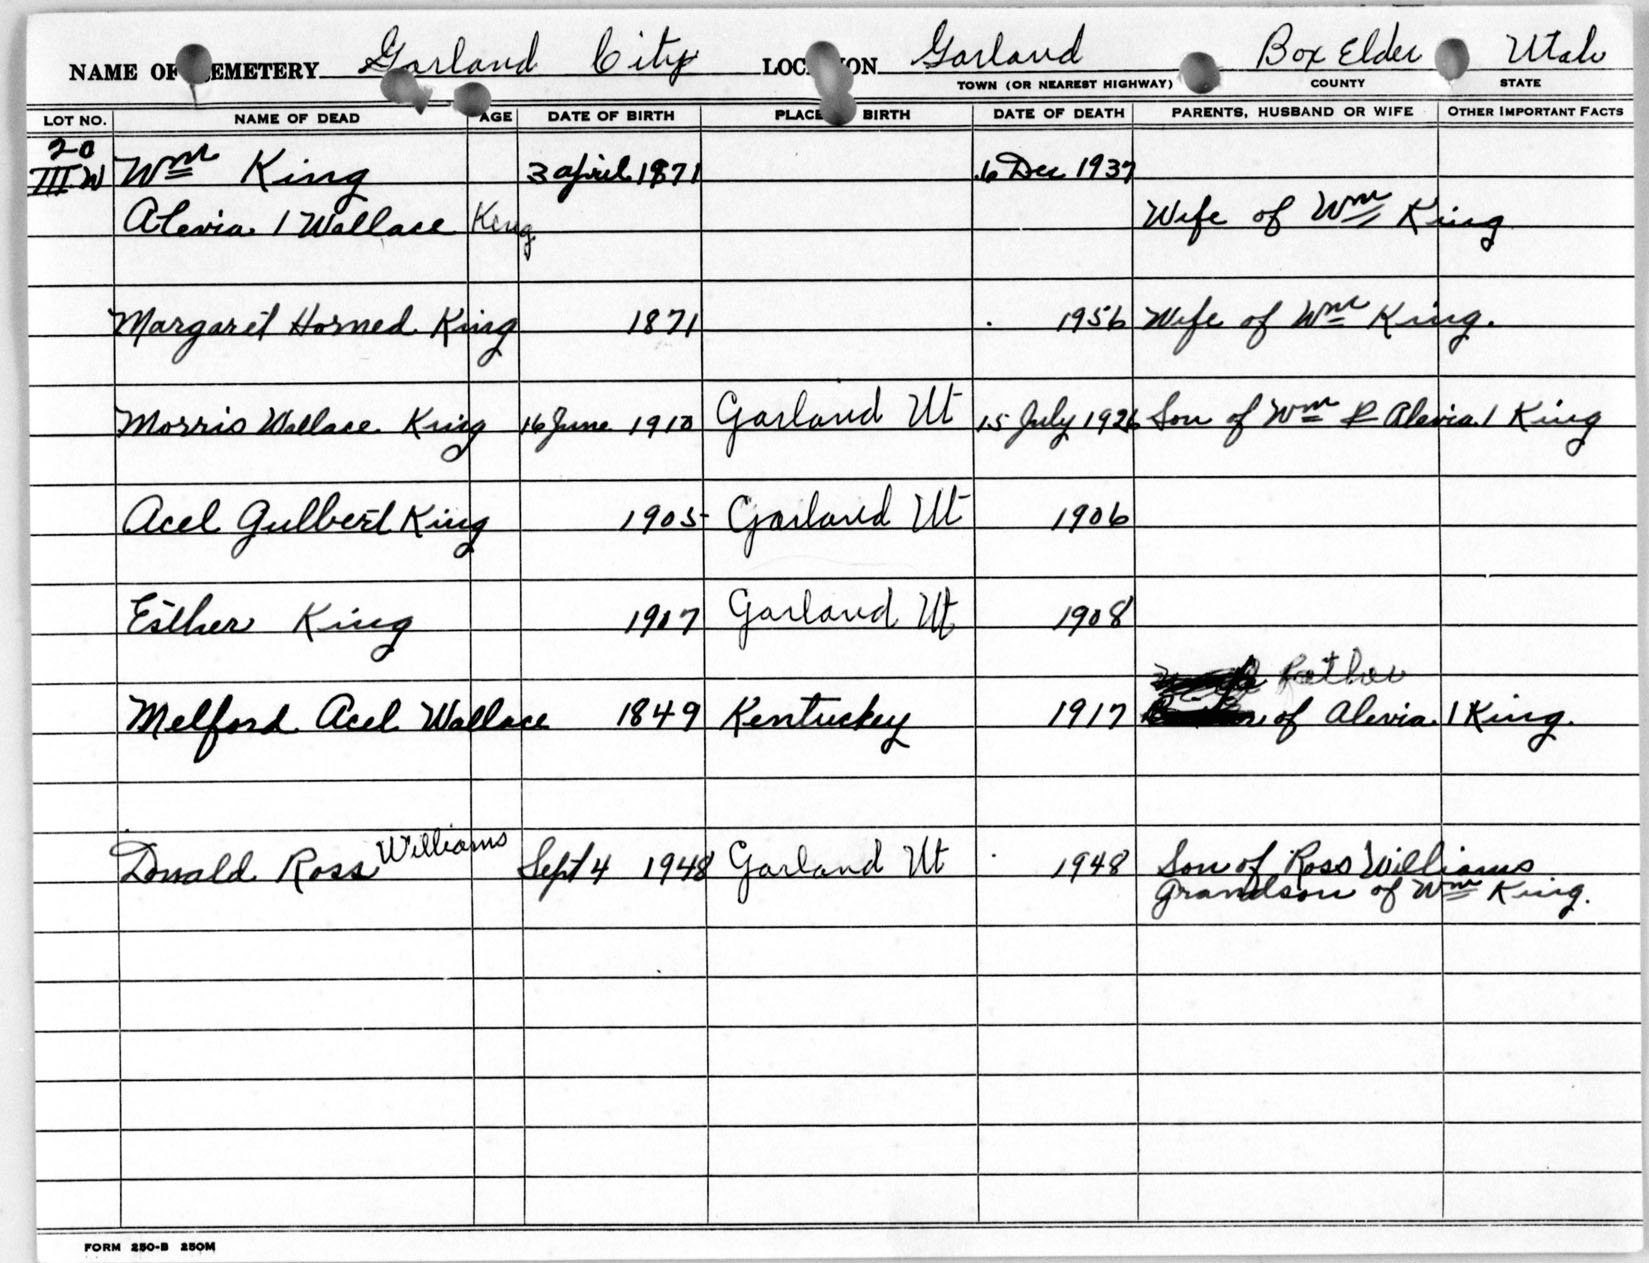 NAME OF CEMETERY Garland City LOCATION Garland Box Elder Utah
TOWN (OR NEAREST HIGHWAY) COUNTY STATE
LOT NO. NAME OF DEAD AGE DATE OF BIRTH PLACE BIRTH DATE OF DEATH PARENTS, HUSBAND OR WIFE OTHER IMPORTANT FACTS
20
III W Wm King 3 april 1871 6 Dec 1937
Alevia 1 Wallace King Wife of Wm King
Margaret Horned King 1871 1956 Wife of Wm King.
Morris Wallace King 16 June 1910 Garland Ut 15 July 1926 Son of Wm & Alevia 1 King
Acel Gulbert King 1905 Garland Ut 1906
Esther King 1907 Garland Ut 1908
Father
Melford Acel Wallace 1849 Kentuckey 1917 of Alevia 1 King.
Donald Ross Williams Sept 4 1948 Garland Ut 1948 Son of Ross Williams
Grandson of Wm King.
FORM 250-B 250M